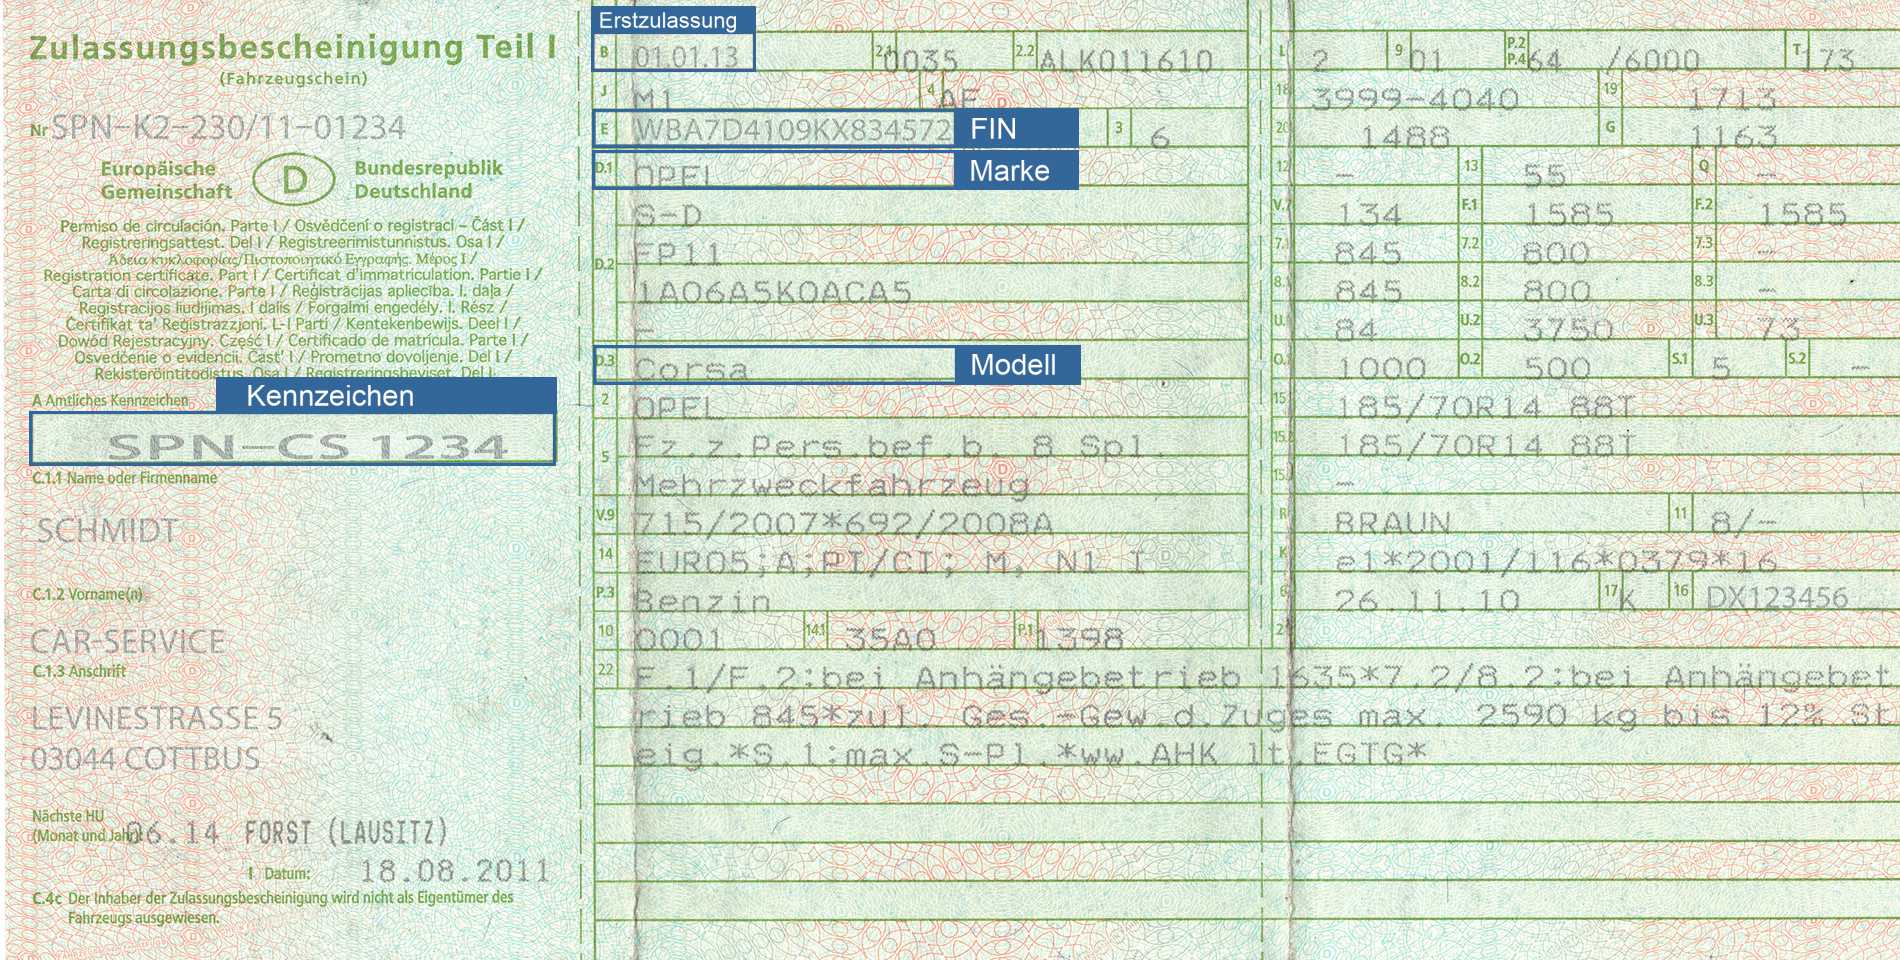 Zulassungsbescheinigung Teil I
(Fahrzeugschein)
Nr SPN-K2-230/11-01234
Europäische Gemeinschaft
D
Bundesrepublik Deutschland
Permiso de circulación. Parte I / Osvědčení o registraci – Část I /
Registreringsattest. Del I / Registreerimistunnistus. Osa I /
Άδεια κυκλοφορίας/Πιστοποιητικό Εγγραφής. Μέρος I /
Registration certificate. Part I / Certificat d'immatriculation. Partie I /
Carta di circolazione. Parte I / Reģistrācijas apliecība. I. daļa /
Registracijos liudijimas. I dalis / Forgalmi engedély. I. Rész /
Ċertifikat ta' Reġistrazzjoni. L-I Parti / Kentekenbewijs. Deel I /
Dowód Rejestracyjny. Część I / Certificado de matrícula. Parte I /
Osvedčenie o evidencii. Časť I / Prometno dovoljenje. Del I /
Rekisteröintitodistus. Osa I / Registreringsbeviset. Del I
Kennzeichen
A Amtliches Kennzeichen
SPN-CS 1234
C.1.1 Name oder Firmenname
SCHMIDT
C.1.2 Vorname(n)
CAR-SERVICE
C.1.3 Anschrift
LEVINESTRASSE 5
03044 COTTBUS
Nächste HU
(Monat und Jahr) 06.14 FORST (LAUSITZ)
I Datum: 18.08.2011
C.4c Der Inhaber der Zulassungsbescheinigung wird nicht als Eigentümer des
Fahrzeugs ausgewiesen.
Erstzulassung
B 01.01.13 2.1 0035 2.2 ALK011610
J M1 4 AF
E WBA7D4109KX834572 FIN 3 6
D.1 OPEL Marke
S-D
FP11
D.2
1A06A5K0ACA5
–
D.3 Corsa Modell
2 OPEL
Fz.z.Pers.bef.b. 8 Spl
5
Mehrzweckfahrzeug
V.9 715/2007*692/2008A
14 EURO5;A;PI/CI; M, N1 I
P.3 Benzin
10 0001 14.1 35A0 P.1 1398
22 F.1/F.2:bei Anhängebetrieb 1635*7.2/8.2:bei Anhängebet
rieb 845*zul. Ges.-Gew.d.Zuges max. 2590 kg bis 12% St
eig.*S.1:max.S-Pl.*ww.AHK lt.EGTG*
L 2 9 01 P.2 P.4 64 /6000 T 173
18 3999-4040 19 1713
20 1488 G 1163
12 – 13 55 Q –
V.7 134 F.1 1585 F.2 1585
7.1 845 7.2 800 7.3 –
8.1 845 8.2 800 8.3 –
U.1 84 U.2 3750 U.3 73
O.1 1000 O.2 500 S.1 5 S.2 –
15.1 185/70R14 88T
15.2 185/70R14 88T
15.3 –
R BRAUN 11 8/–
K e1*2001/116*0379*16
6 26.11.10 17 K 16 DX123456
21